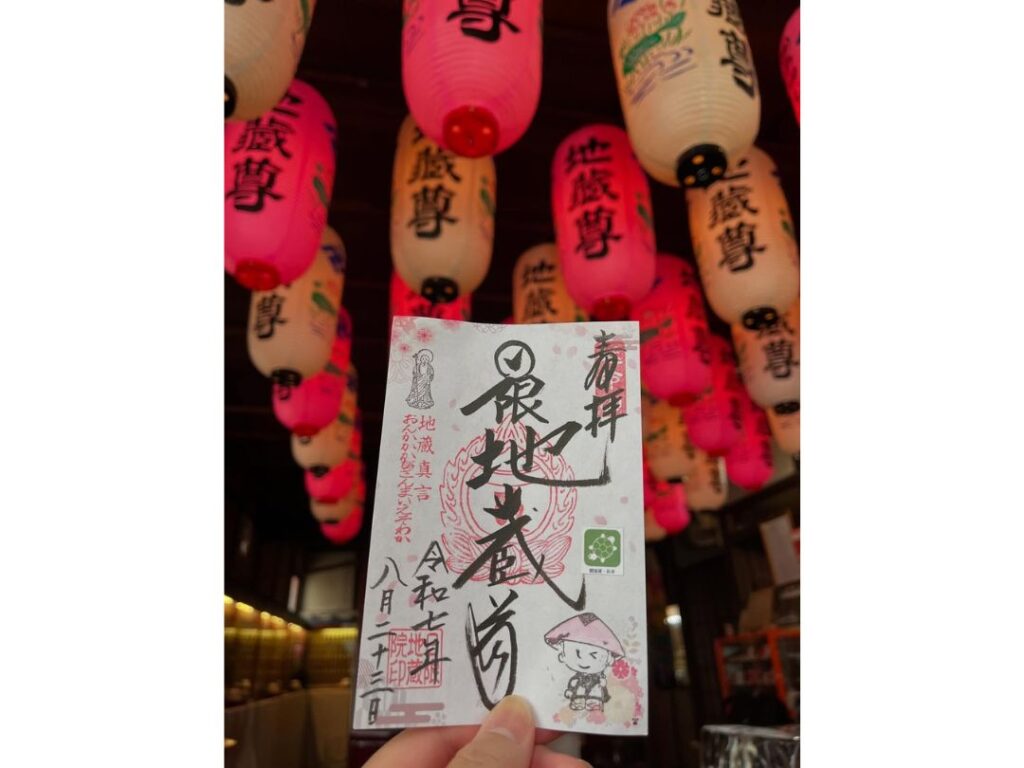 尊
尊
地蔵尊
蔵尊
地蔵尊
地蔵尊
尊
地蔵
尊
奉拝
日限地蔵尊
地蔵真言
おんかかかびさんまいえそわか
令和七年
八月二十三日
日限
地蔵
院印